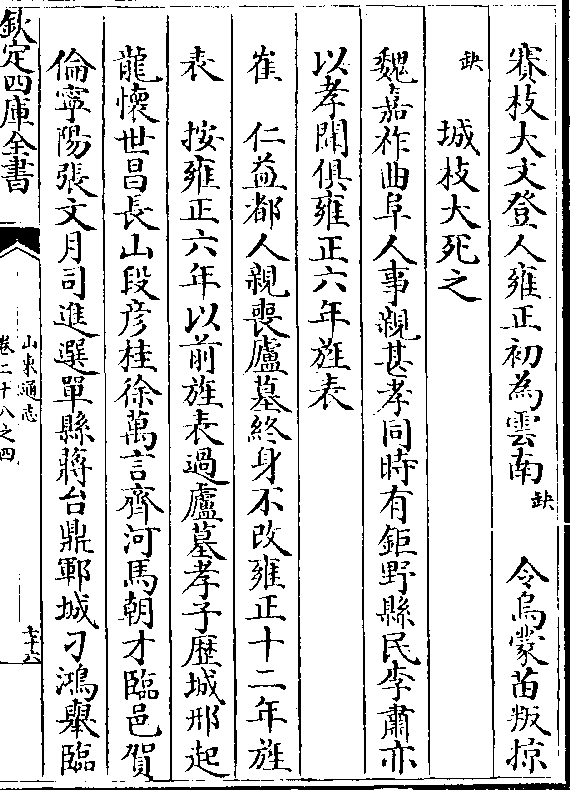 賽枝大文登人雍正初為雲南缺　令烏蒙苗叛掠
缺　城枝大死之
魏嘉祚曲阜人事親甚孝同時有鉅野縣民李肅亦
以孝聞俱雍正六年旌表
崔　仁益都人親喪廬墓終身不改雍正十二年旌
表　按雍正六年以前旌表過廬墓孝子歴城邢起
龍懷世昌長山段彦桂徐萬言齊河馬朝才臨邑賀
倫寧陽張文月司進選單縣蔣台鼎鄆城刁鴻舉臨
欽定四庫全書
山東通志
卷二十八之四
七十六